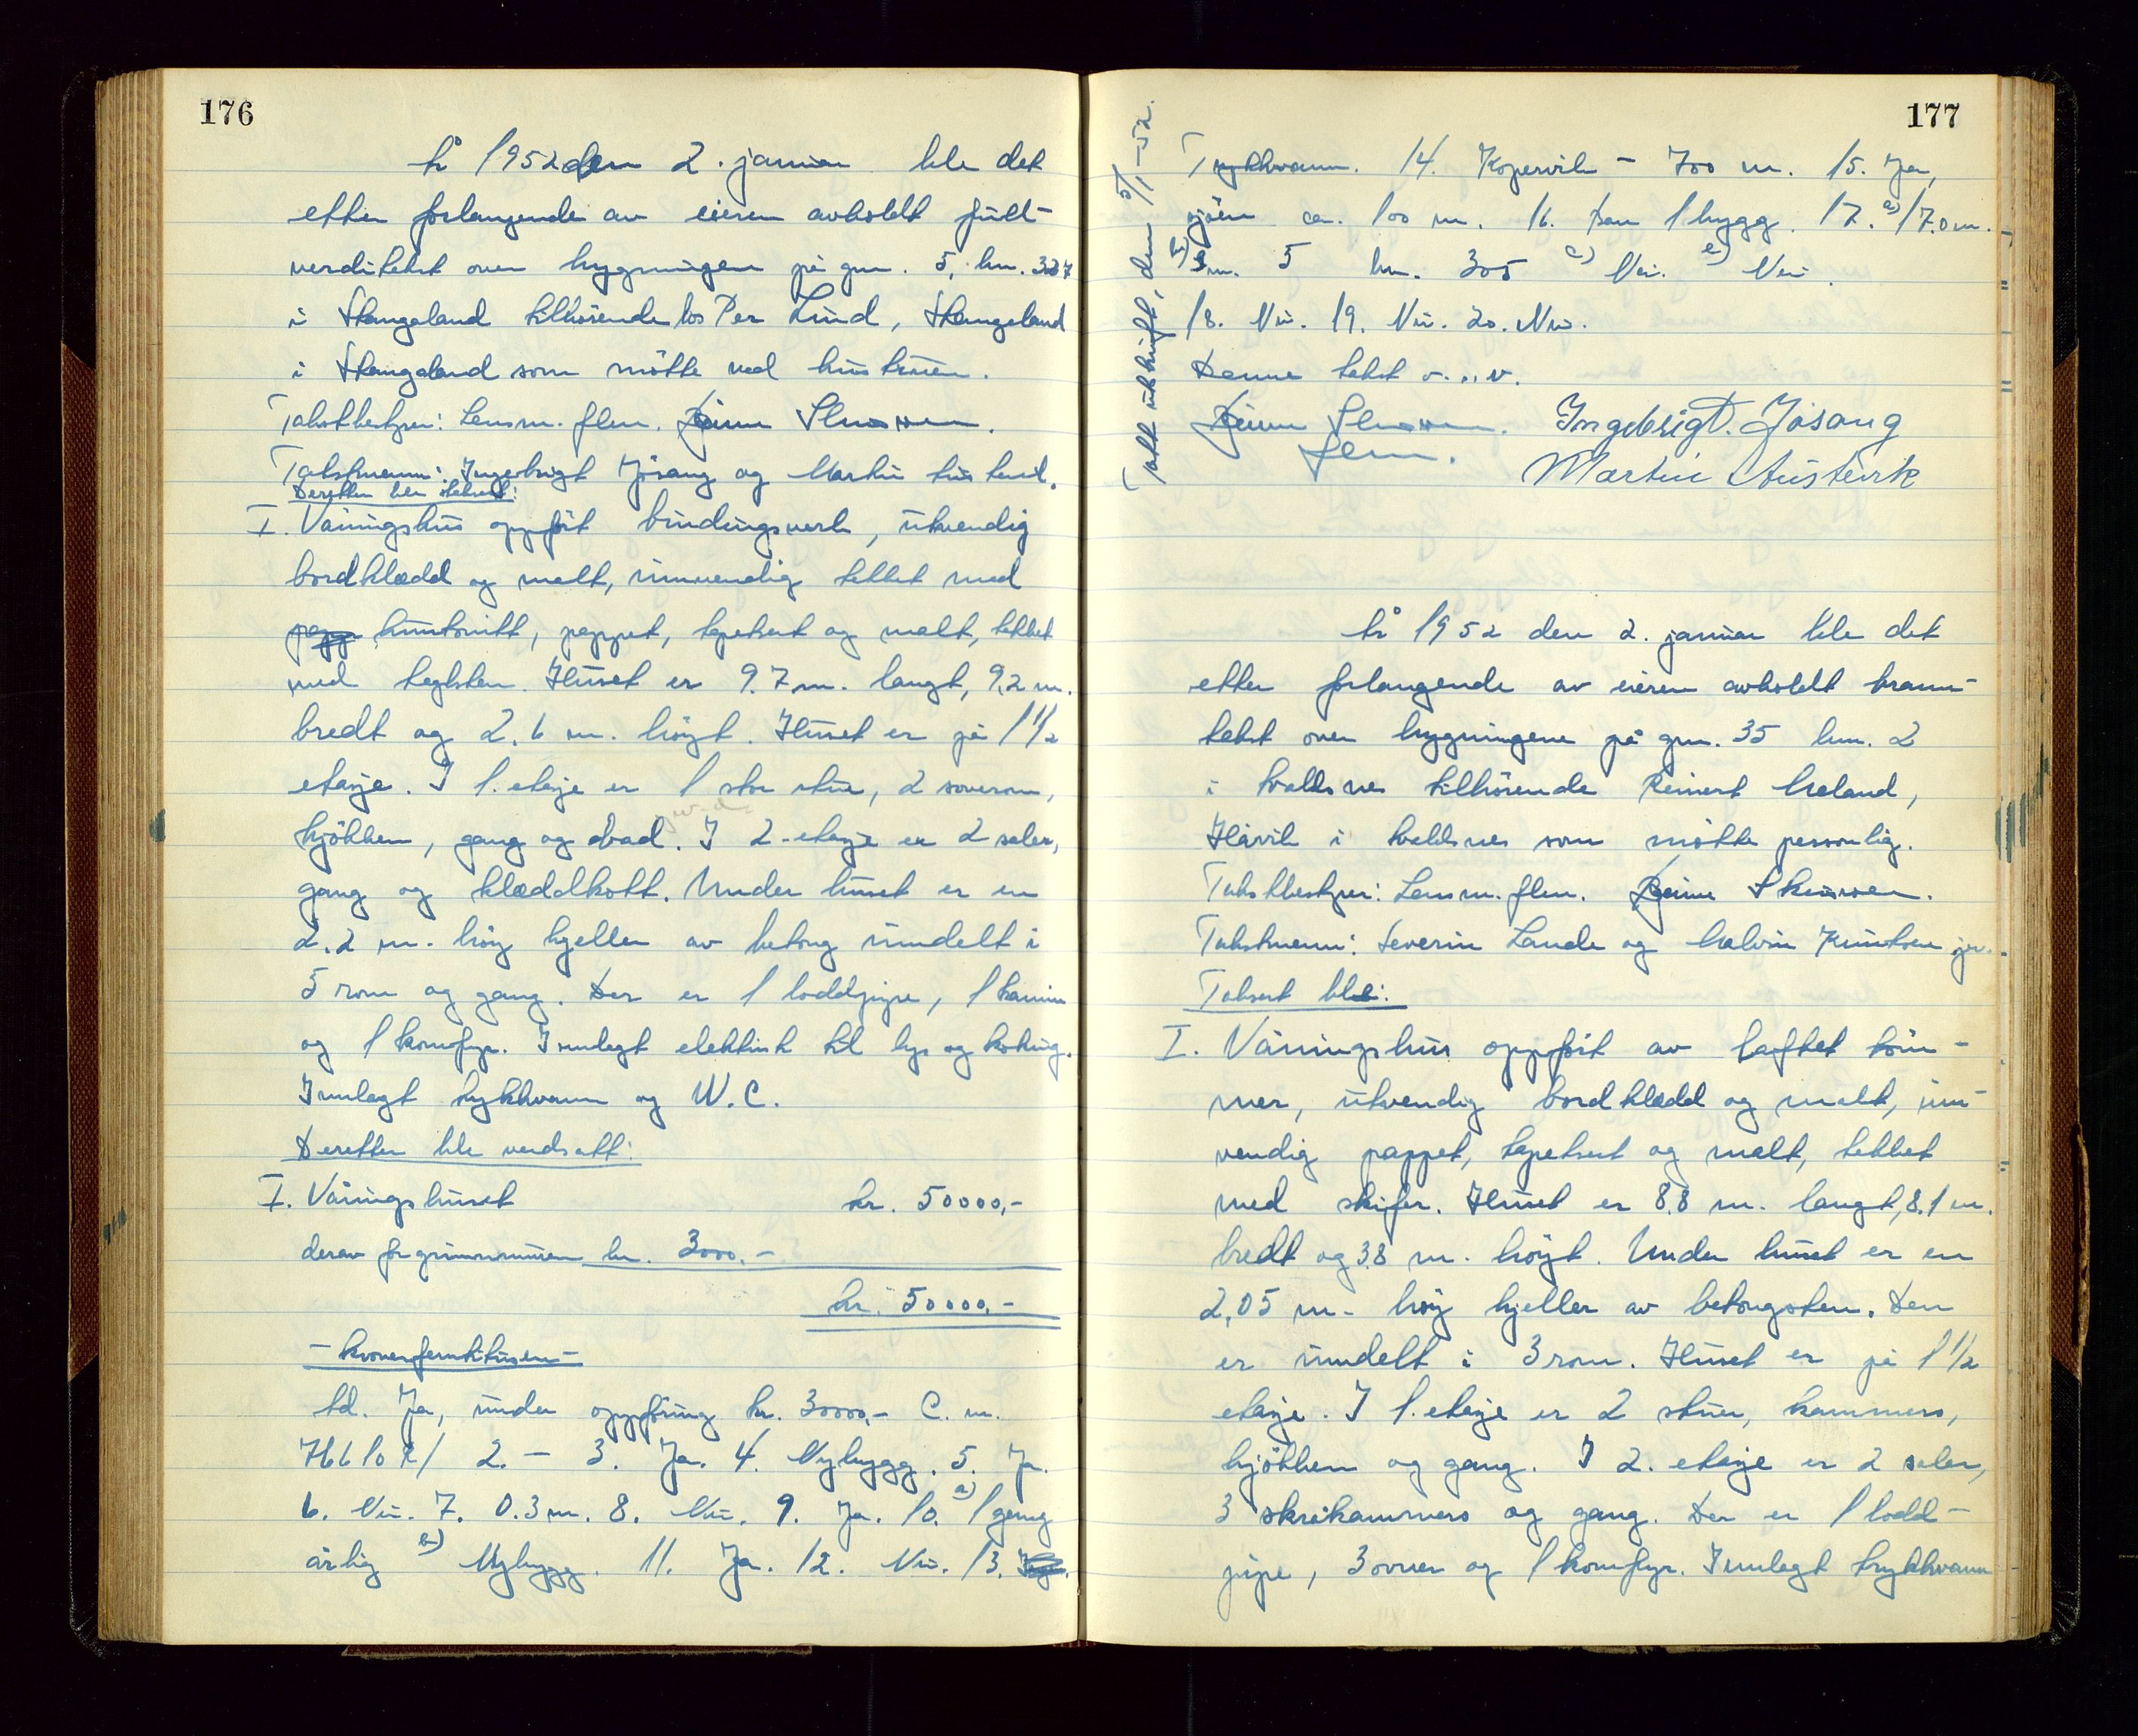 176
År 1952 den 2. januar ble det
etter forlangende av eieren avholdt full-
verditakst over bygningen på gnr. 5, bnr. 327
i Skangeland tilhørende Per Lund, Skangeland
i Skangeland som møtte ved hustruen.
Takstbestyrer: Lensm. flm.
Takstmenn: Ingebrigt Jøsang og Martin Austevik.
Deretter ble taksert:
I. Våningshus oppført bindingsverk, utvendig
bordklædd og malt, innvendig tekket med
huntonitt, pappet, tapetsert og malt, tekket
med teglsten. Huset er 9.7 m. langt, 9,2 m.
bredt og 2.6 m. høyt. Huset er på 1 1/2
etasje. I 1. etasje er 1 stor stue, 2 soverom,
kjøkken, gang og bad. I 2-etasje er 2 saler,
gang og klæddkott. Under huset er en
2.2 m. høy kjeller av betong inndelt i
5 rom og gang. Der er 1 loddpipe, 1 kamin
og 1 komfyr. Innlagt elektrisk til lys og koking.
Innlagt trykkvann og W.C.
Deretter ble verdsatt:
I. Våningshuset kr. 50000,-
derav for grunnmuren kr. 3000.-
kr. 50000.-
td. Ja, under oppføring kr. 30000,- C. nr.
2. - 3. Ja. 4. Nybygg. 5. Ja.
6. Nei. 7. 0.3 m. 8. Nei. 9. Ja. 10. a) 1 gang
årlig b) Nybygg. 11. Ja. 12. Nei. 13.
177
Trykkvann. 14. Kopervik - 700 m. 15. Ja,
sjøen ca. 100 m. 16. Den 1 bygg. 17. a) 17.0 m.
b) gnr. 5 bnr. 305 c) Nei. e) Nei.
18. Nei. 19. Nei. 20. Nei.
Denne takst o.s.v.
flm.
Ingebrigt. Jøsang
Martin Austevik
(Tatt utskrift, den 5/1-52.
År 1952 den 2. januar ble det
etter forlangende av eieren avholdt brann-
takst over bygningene på gnr. 35 bnr. 2
i Avaldsnes tilhørende Reinert Meland,
Håvik i Avaldsnes som møtte personlig.
Takstbestyrer: Lensm. flm.
Takstmenn: Severin Lande og Malvin Knutsen jr.
Taksert ble:
I. Våningshus oppført av laftet tøm-
mer, utvendig bordklædd og malt, inn-
vendig pappet, tapetsert og malt, tekket
med skifer. Huset er 8.8 m. langt, 8.1 m.
bredt og 3.8 m. høyt. Under huset er en
2,05 m. høy kjeller av betongsten. Den
er inndelt i 3 rom. Huset er på 1 1/2
etasje. I 1. etasje er 2 stuer, kammers,
kjøkken og gang. I 2. etasje er 2 saler,
3 skråkammers og gang. Der er 1 lodd-
pipe, 3 ovner og 1 komfyr. Innlagt trykkvann